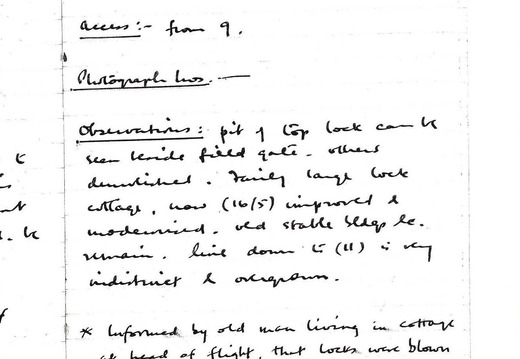 Access:- from 9.
Photograph nos. —
Observations: pit of top lock can be
seen beside field gate - others
demolished. Fairly large lock
cottage, now (16/5) improved &
modernised. old stable bldgs &c.
remain. line down to (11) is very
indistinct & overgrown.
* Informed by old man living in cottage
at head of flight, that locks were blown